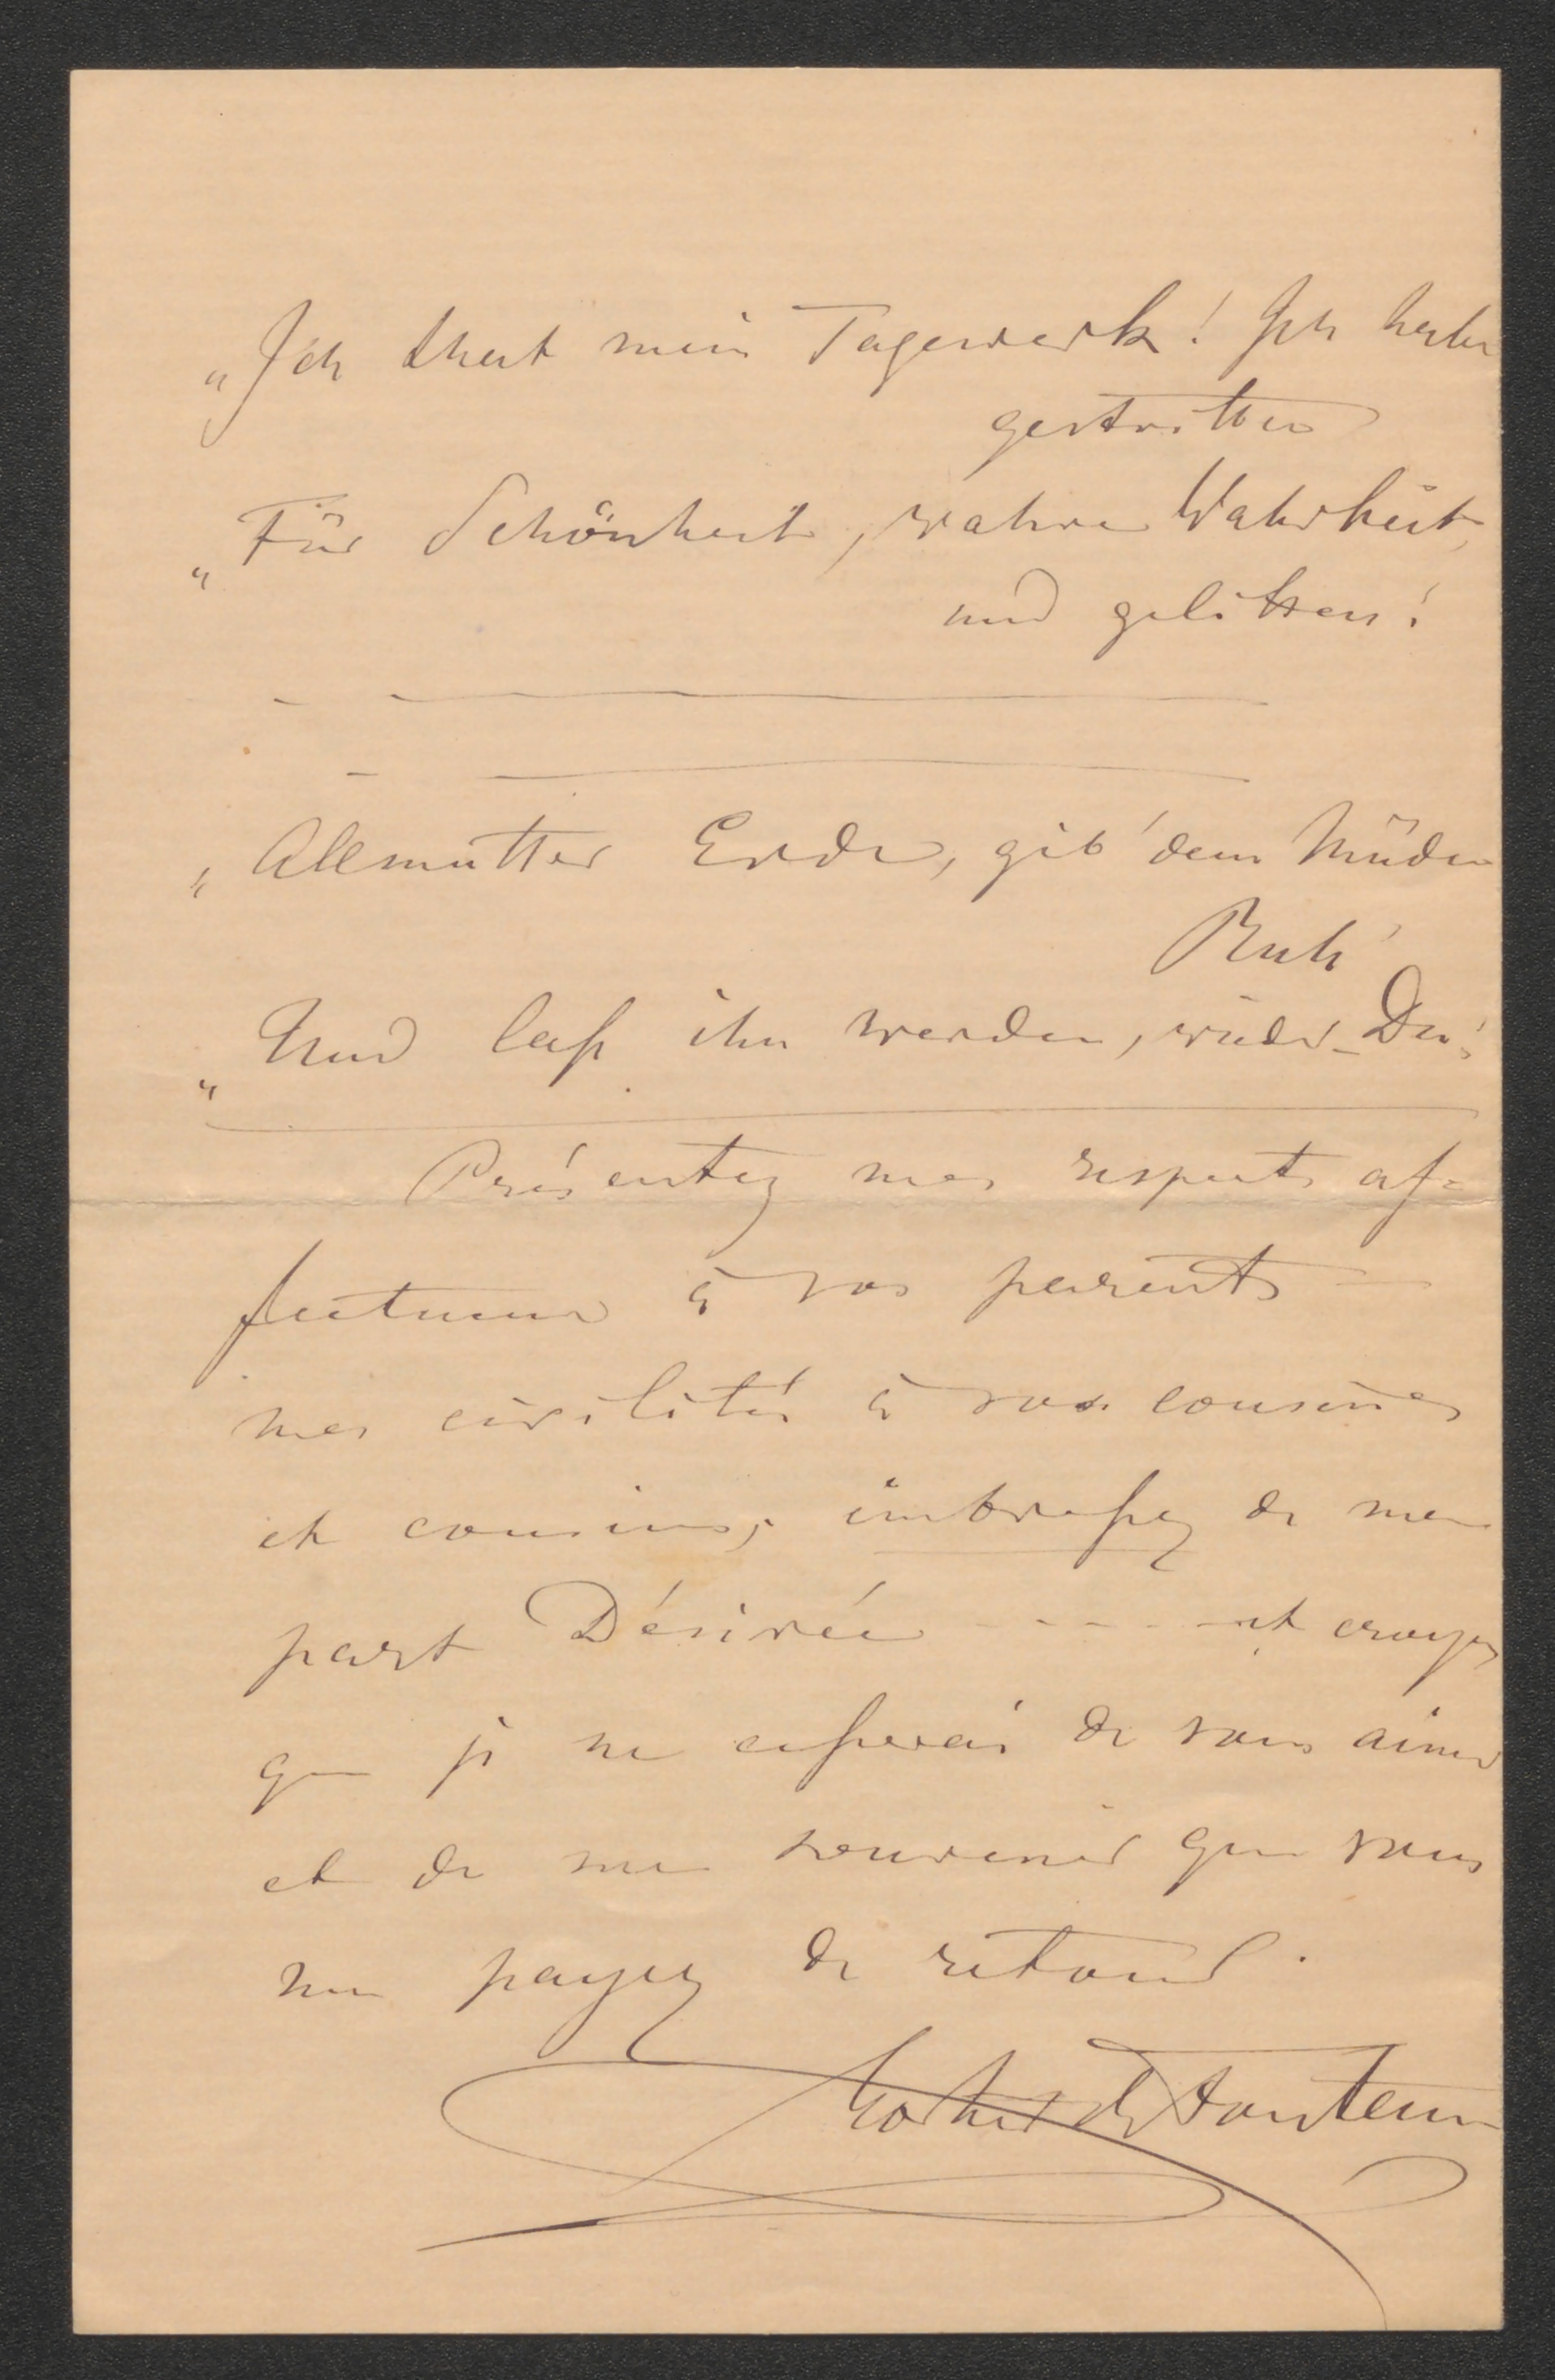 „Ich that mein Tagewerk! Ich habe
gestritten
„Für Schönheit, wahre Wahrheit,
und gelitten!
„Allmutter Erde, gib' dem Müden
Ruh'
„Und laß ihn werden, wieder Du!
Présentez mes respects af=
fectueux à vos parents —
mes civilités à vos cousines
et cousins, embraßez de ma
part Désirée - - - - et croyez
que je ne ceßerai de vous aimer
et de me souvenir que vous
me payez de retour.